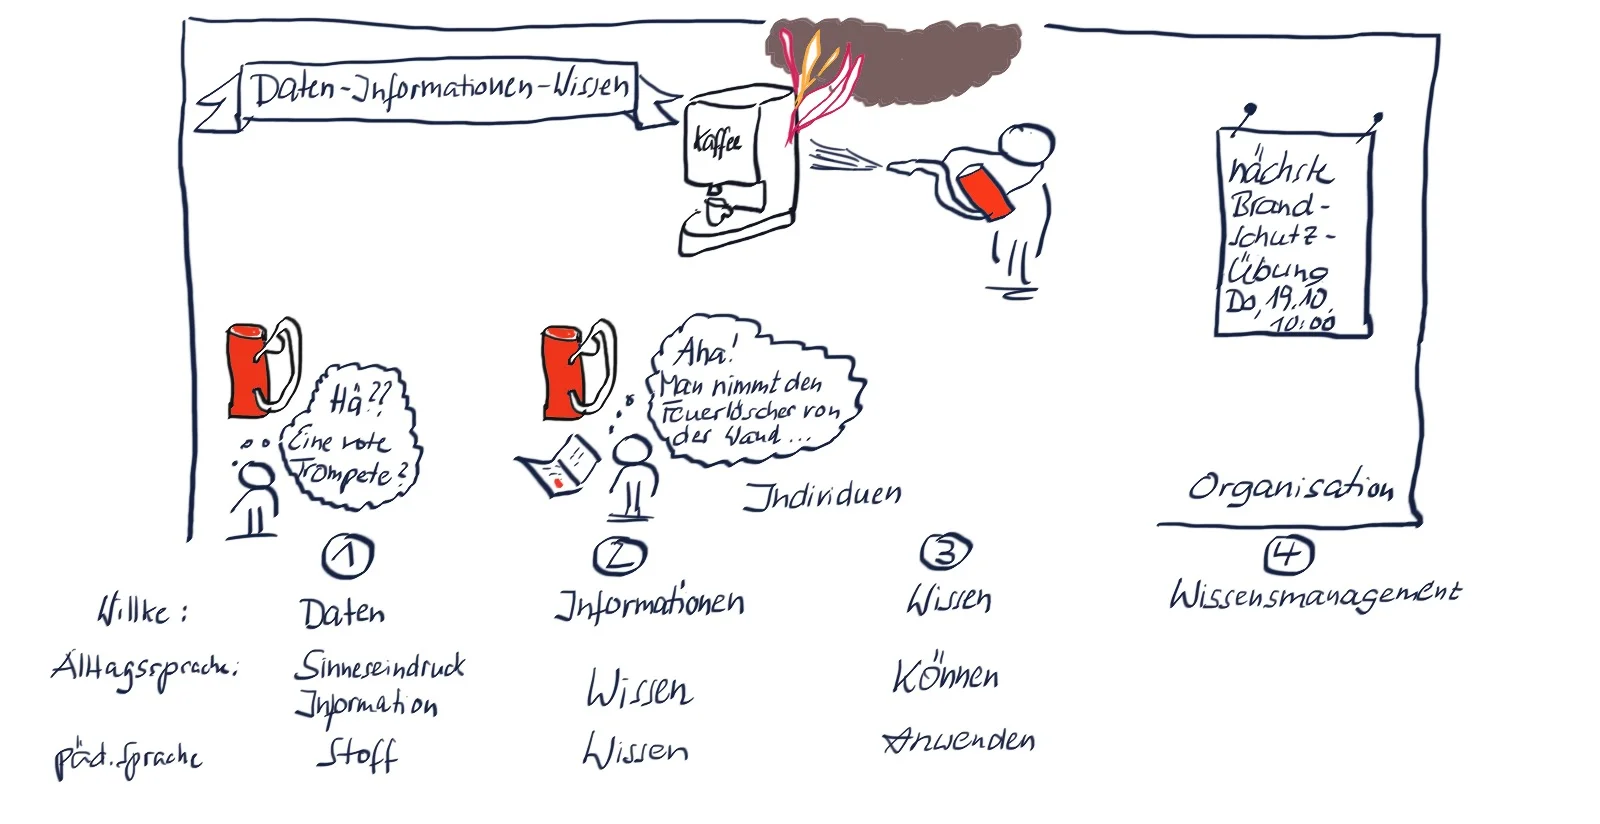 Daten-Informationen-Wissen
Kaffee
nächste
Brand-
schutz-
Übung
Do, 19.10.
10:00
Hä??
Eine rote
Trompete?
Aha!
Man nimmt den
Feuerlöscher von
der Wand...
Individuen
Organisation
1 2 3 4
Willke: Daten Informationen Wissen Wissensmanagement
Alltagssprache: Sinneseindruck
Information Wissen Können
päd. Sprache Stoff Wissen Anwenden